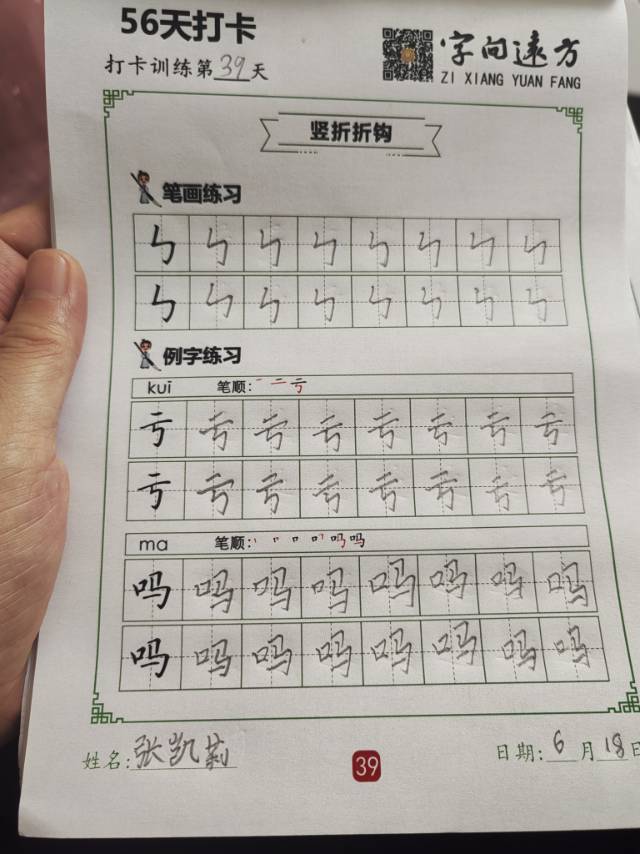 56天打卡
打卡训练第39天
字向远方
ZI XIANG YUAN FANG
竖折折钩
笔画练习
㇉ ㇉ ㇉ ㇉ ㇉ ㇉ ㇉ ㇉
㇉ ㇉ ㇉ ㇉ ㇉ ㇉ ㇉ ㇉
例字练习
kui 笔顺: 一 二 亏
亏 亏 亏 亏 亏 亏 亏 亏
亏 亏 亏 亏 亏 亏 亏 亏
ma 笔顺: 丨 口 吗 吗
吗 吗 吗 吗 吗 吗 吗 吗
吗 吗 吗 吗 吗 吗 吗 吗
姓名: 张凯莉
39
日期: 6月18日